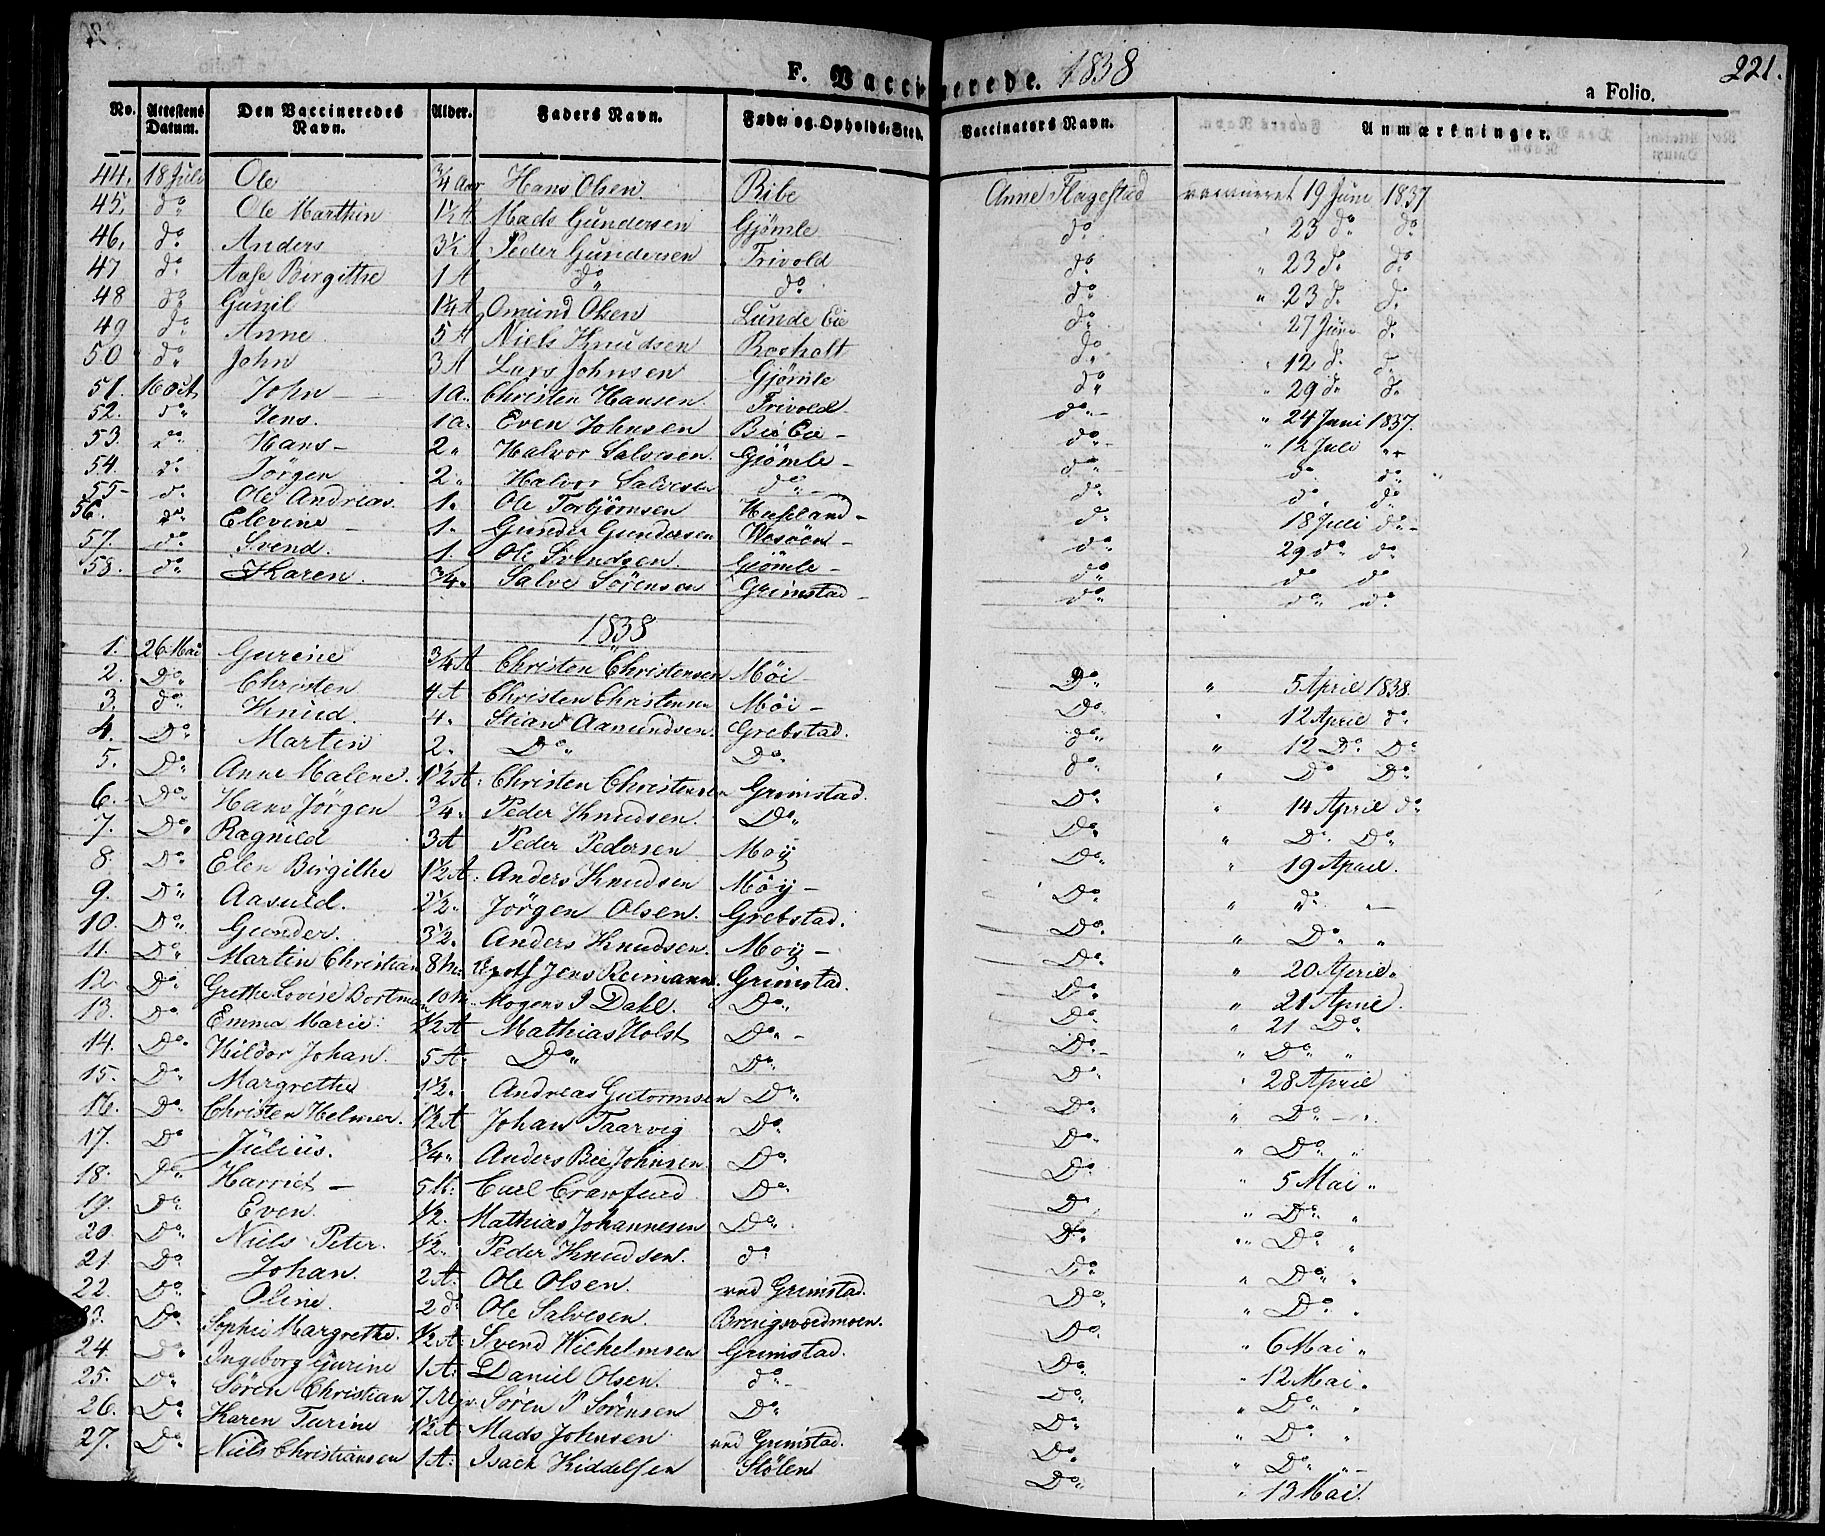 F. Vaccinerede. 1838 221.
a Folio.
No. Attestens Datum. Den Vaccineredes Navn. Alder. Faders Navn. Føde- og Opholds-Sted. Vaccinators Navn. Anmærkninger.
44. 18 Juli Ole ¾ Aar Hans Olsen. Ribe Anne Flagestad vaccineret 19 Juni 1837
45. do Ole Marthin 1½ A Mads Gundersen Gjömle do " 23 do do
46. do Anders 3½ A Peder Gundersen Trivold do " 23 do do
47 do Aase Birgithe 1 A do do do " 23 do do
48 do Gunil 1¼ A Omund Olsen Lunde Eie do 27 Juni do
49 do Anne 5 A Niels Knudsen Rosholt do " 12 do do
50 do John 3 A Lars Johnsen Gjömle do " 29 do do
51. 16 Oct John - 1 a. Christen Hansen. Trivold do - " 24 Juni 1837.
52. do Jens. 1 a. Even Johnsen Bie Eie - do - " 12 Juli "
53. do Hans - 2 " Halvor Salvesen. Gjömle - do - do do "
54. do Jörgen 2 " Halvor Salvesen do - do do do
55 - do Ole Andreas. 1. Ole Torbjörnsen Hasseland - do 18 Juli do -
56. do Elevine - 1. Gunder Gundersen Vesöen - do 29 do do
57. do Svend. 1. Ole Svendsen Gjömle - do do do
58. do Karen. ¾ " Salve Sörensen Grimstad - do do do
1838
1. 26 Mai Gurine ¾ A Christen Christensen Möi Do " 5 April 1838.
2. Do Christen 4 A Christen Christensen Möi - Do " 12 April do
3. do Knud. 4. Stian Aamundsen. Grebstad. do " 12 Do Do
4. Do Martin 2. Do Do do " Do Do
5. Do Anne Malene. 1½ A. Christen Christensen Grimstad. Do " 14 April do
6. Do Hans Jörgen ¾. Peder Knudsen. Do Do " Do Do
7. Do Ragnild 3 A Peder Pedersen Moy Do " 19 April.
8. Do Elen Birgithe 1½ A. Anders Knudsen Möy - Do " do -
9. Do Aasuld. 2½. Jörgen Olsen. Grebstad. Do " Do "
10. Do Gunder. 3½. Anders Knudsen. Moy - Do " 20 April "
11. Do Martin Christian 8 M. Jens Reimann. Grimstad. Do " 21 April.
12. Do Grethe Lovise Bortman 10 M. Mogens I Dahl. Do Do " 21 Do
13. Do Emma Marie. ½ A Mathias Holst Do - Do - " Do "
14. Do Hildor Johan. 5 A. Do Do Do " 28 April
15. Do Margrethe 1½. Andreas Gutormsen Do Do " Do - "
16. Do Christen Helmer. 1½ A Johan Taarvig Do Do " Do "
17. Do Julius. ¾ " Anders Bie Johnsen. Do Do " 5 Mai "
18. Do Harriet - 5 M. Carl Crawfurd Do Do " Do "
19. Do Even. ½. Mathias Johannesen Do Do " Do "
20. Do Niels Peter. ½. Peder Knudsen. do Do " Do "
21. Do Johan. 2 A. Ole Olsen. ved Grimstad. Do " Do "
22. Do Oline. 2 do Ole Salvesen. Bringsvoedmoen. Do " 6 Mai "
23. Do Sophie Margrethe. ½ A. Svend Wilhelmsen Grimstad. Do " 12 Mai "
24. Do Ingeborg Gurine 1 A. Daniel Olsen. do - Do " Do "
25. Do Sören Christian 7 Sören P Sörensen Do Do " Do "
26. Do Karen Turine 1½ A Mads Johnsen ved Grimstad. Do " Do " -
27. Do Niels Christiansen 1 A. Isach Kiddelsen Stölen Do " 13 Mai.